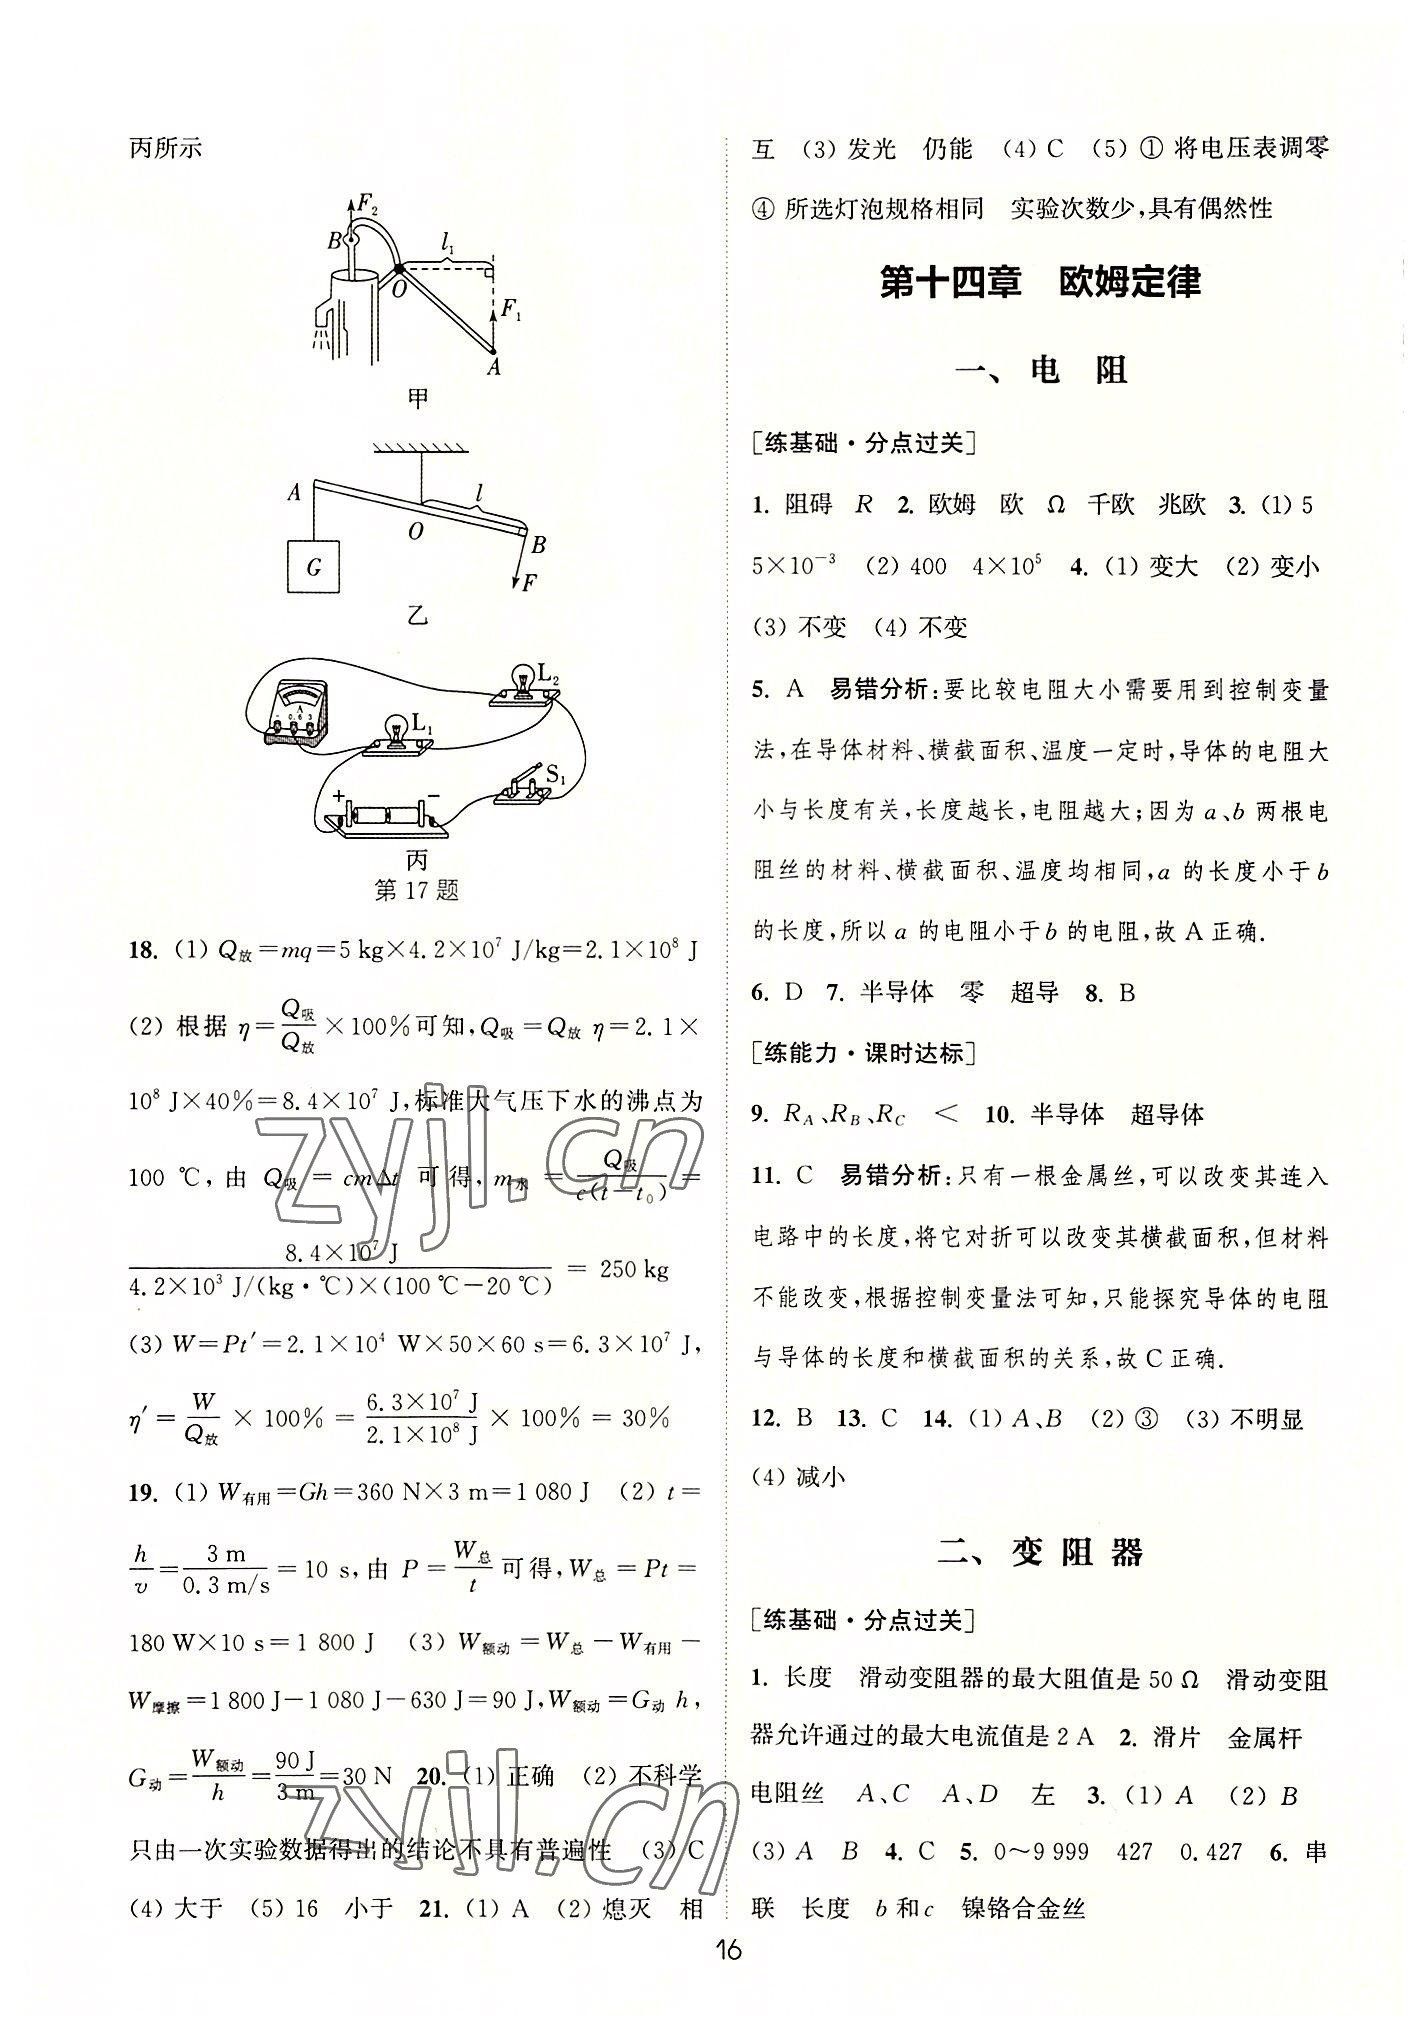 丙所示
F₂
B
l₁
O
F₁
A
甲
A
l
O
B
G
F
乙
L₂
A
- 0.6 3
L₁
S₁
+ -
丙
第 17 题
18. (1) Q放=mq=5 kg×4.2×10⁷ J/kg=2.1×10⁸ J
(2) 根据 η=Q吸/Q放×100%可知,Q吸=Q放 η=2.1×
10⁸ J×40%=8.4×10⁷ J,标准大气压下水的沸点为
100 ℃,由 Q吸=cmΔt 可得,m水=Q吸/c(t-t₀)=
8.4×10⁷ J/4.2×10³ J/(kg·℃)×(100 ℃-20 ℃)=250 kg
(3) W=Pt′=2.1×10⁴ W×50×60 s=6.3×10⁷ J,
η′=W/Q放×100%=6.3×10⁷ J/2.1×10⁸ J×100%=30%
19. (1) W有用=Gh=360 N×3 m=1 080 J (2) t=
h/v=3 m/0.3 m/s=10 s,由 P=W总/t可得,W总=Pt=
180 W×10 s=1 800 J (3) W额动=W总-W有用-
W摩擦=1 800 J-1 080 J-630 J=90 J,W额动=G动 h,
G动=W额动/h=90 J/3 m=30 N 20. (1) 正确 (2) 不科学
只由一次实验数据得出的结论不具有普遍性 (3) C
(4) 大于 (5) 16 小于 21. (1) A (2) 熄灭 相
互 (3) 发光 仍能 (4) C (5) ① 将电压表调零
④ 所选灯泡规格相同 实验次数少,具有偶然性
第十四章 欧姆定律
一、电 阻
[练基础·分点过关]
1. 阻碍 R 2. 欧姆 欧 Ω 千欧 兆欧 3. (1) 5
5×10⁻³ (2) 400 4×10⁵ 4. (1) 变大 (2) 变小
(3) 不变 (4) 不变
5. A 易错分析:要比较电阻大小需要用到控制变量
法,在导体材料、横截面积、温度一定时,导体的电阻大
小与长度有关,长度越长,电阻越大;因为 a、b 两根电
阻丝的材料、横截面积、温度均相同,a 的长度小于 b
的长度,所以 a 的电阻小于 b 的电阻,故 A 正确.
6. D 7. 半导体 零 超导 8. B
[练能力·课时达标]
9. R_A、R_B、R_C < 10. 半导体 超导体
11. C 易错分析:只有一根金属丝,可以改变其连入
电路中的长度,将它对折可以改变其横截面积,但材料
不能改变,根据控制变量法可知,只能探究导体的电阻
与导体的长度和横截面积的关系,故 C 正确.
12. B 13. C 14. (1) A、B (2) ③ (3) 不明显
(4) 减小
二、变 阻 器
[练基础·分点过关]
1. 长度 滑动变阻器的最大阻值是 50 Ω 滑动变阻
器允许通过的最大电流值是 2 A 2. 滑片 金属杆
电阻丝 A、C A、D 左 3. (1) A (2) B
(3) A B 4. C 5. 0～9 999 427 0.427 6. 串
联 长度 b 和 c 镍铬合金丝
16
zyjl.cn
zyjl.cn